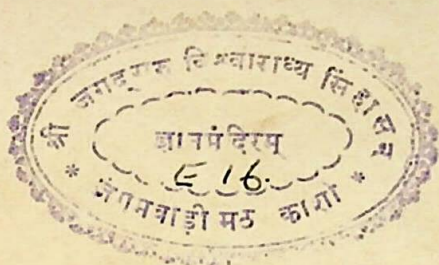 श्री जगद्गुरु विश्वाराध्य सिंहासन
ज्ञानमंदिरम्
E 16.
* जंगमवाड़ी मठ काशी *